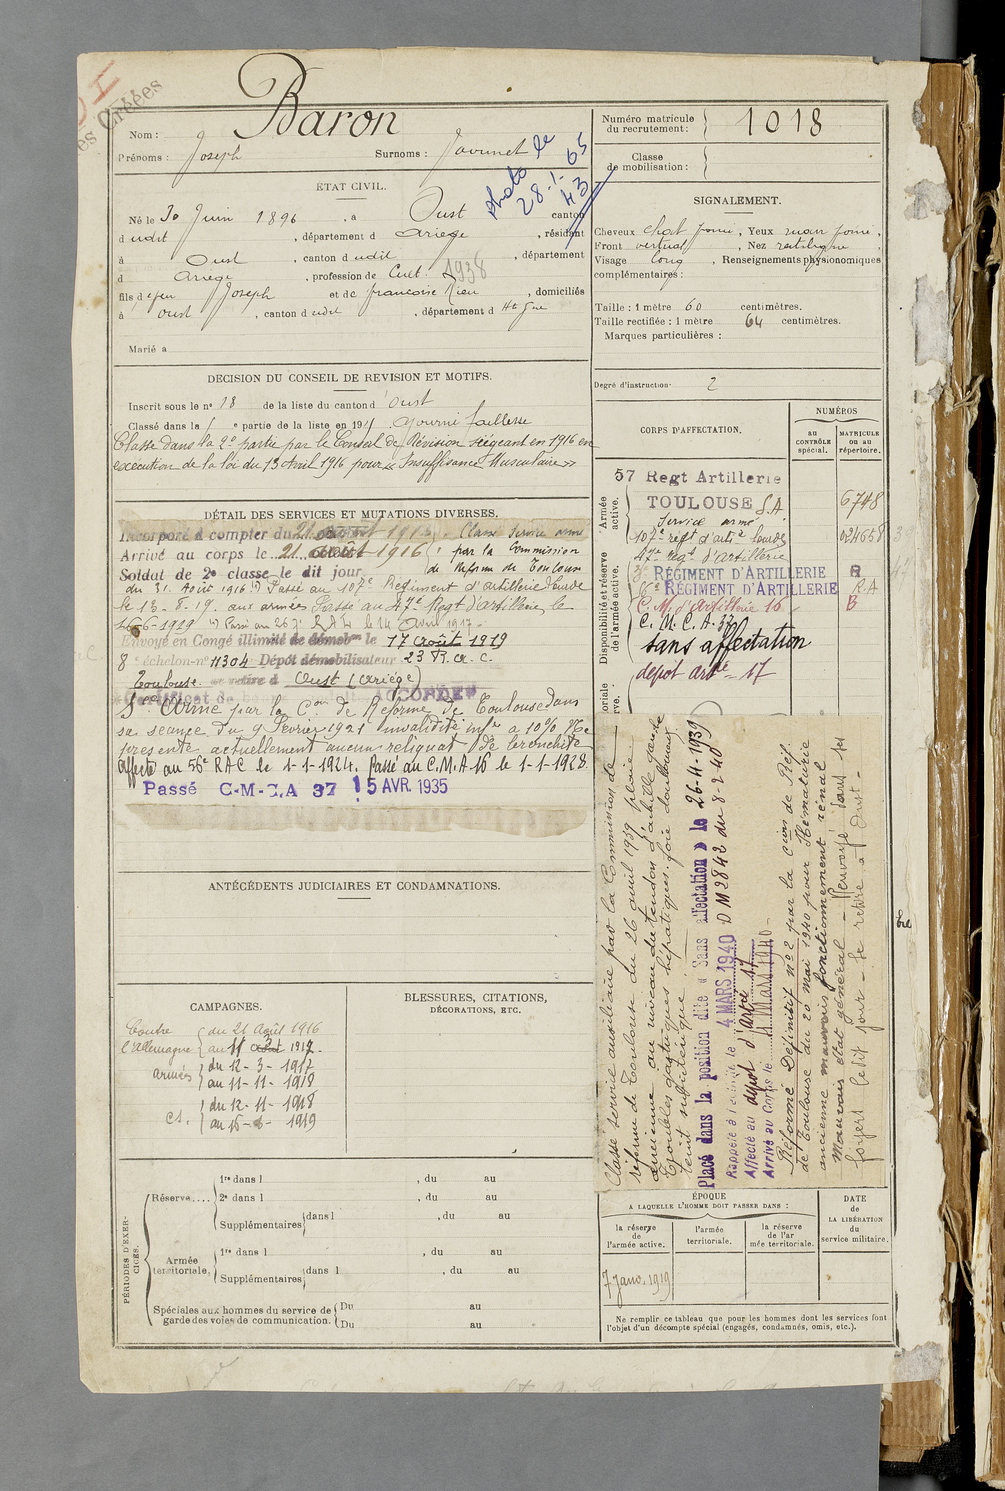 es Créées
Baron
Nom :
Prénoms : Joseph Surnoms :
photo le
28.1.65
43
ÉTAT CIVIL.
Né le 30 Juin 1896, à Oust canton
d udit, département d Ariège, résidant
à Oust, canton d udit, département
d Ariège, profession de Cult. 1938
fils d e feu Joseph et de françoise Rieu, domiciliés
à Oust, canton d udit, département d
Marié à
DECISION DU CONSEIL DE REVISION ET MOTIFS.
Inscrit sous le n° 18 de la liste du canton d Oust
Classé dans la 1 e partie de la liste en 191 Ajourné faiblesse
Classé dans la 2e partie par le Conseil de Révision siégeant en 1916 en
exécution de la loi du 13 Avril 1916 pour « Insuffisance Musculaire »
DÉTAIL DES SERVICES ET MUTATIONS DIVERSES.
Incorporé à compter du 21 août 1916. Classé Service armé
Arrivé au corps le 21 août 1916 par la Commission
Soldat de 2e classe le dit jour de Réforme de Toulouse
du 31 Août 1916 Passé au 107e Régiment d'artillerie lourde
le 13-8-19. aux armées Passé au 47e Regt d'artillerie le
16-6-1919
Envoyé en Congé illimité de démobon le 17 Août 1919
8e échelon-n° 11304 Dépôt démobilisateur 23 R.a.c.
Toulouse se retire à Oust (Ariège)
Certificat de ACCORDÉ
Sce Armé par la Con de Réforme de Toulouse dans
sa séance du 9 Février 1921 invalidité infre à 10% Ne
présente actuellement aucun reliquat de bronchite
Affecté au 56e RAC le 1-1-1924. Passé au C.M.A 16 le 1-1-1928.
Passé C-M-C.A 37 15 AVR. 1935
ANTÉCÉDENTS JUDICIAIRES ET CONDAMNATIONS.
CAMPAGNES.
Contre l'Allemagne du 21 Août 1916
au 11 1917
armées du 12-3-1917
au 11-11-1918
du 12-11-1918
au 15-6-1919
BLESSURES, CITATIONS,
DÉCORATIONS, ETC.
PÉRIODES D'EXERCICES.
Réserve....
1re dans l , du au
2e dans l , du au
Supplémentaires dans l , du au
Armée territoriale.
1re dans l , du au
Supplémentaires dans l , du au
Spéciales aux hommes du service de garde des voies de communication.
Du au
Du au
Numéro matricule du recrutement : 1018
Classe de mobilisation :
SIGNALEMENT.
Cheveux chat foncé, Yeux foncé,
Front vertical, Nez rectiligne,
Visage long, Renseignements physionomiques
complémentaires :
Taille : 1 mètre 60 centimètres.
Taille rectifiée : 1 mètre 64 centimètres.
Marques particulières :
Degré d'instruction· 2
CORPS D'AFFECTATION.
NUMÉROS
au CONTRÔLE spécial.
MATRICULE ou au répertoire.
Armée active.
Disponibilité et réserve de l'armée active.
57 Regt Artillerie
TOULOUSE S.A 6748
Service armé
107e regt d'artie lourde 024658
47e regt d'artillerie
3e RÉGIMENT D'ARTILLERIE R
6e RÉGIMENT D'ARTILLERIE R.A
C.M. d'artillerie 16 B
C.M.C.A. 37
sans affectation
dépôt artie 17
Classé service auxiliaire par la Commission de
réforme de Toulouse du 26 avril 1939 plaie
ancienne au niveau du tendon d'achille gauche
Troubles gastriques hépatiques, foie douloureux
teint subictérique
Placé dans la position dite « Sans affectation » le 26-4-1939
Rappelé à l'activité le 4 MARS 1940 DM 2842 du 8-2-40
Affecté au dépôt d'artie 17
Arrivé au Corps le 4 Mars 1940
Réformé Définitif n° 2 par la cion de Réf.
de Toulouse du 20 mai 1940 pour Hématurie
ancienne mauvais fonctionnement rénal
Mauvais état général - Renvoyé dans ses
foyers ledit jour - Se retire à Oust -
ÉPOQUE
A LAQUELLE L'HOMME DOIT PASSER DANS :
la réserve de l'armée active.
l'armée territoriale.
la réserve de l'armée territoriale.
DATE
de
LA LIBÉRATION
du
service militaire.
7 Janv. 1919
Ne remplir ce tableau que pour les hommes dont les services font
l'objet d'un décompte spécial (engagés, condamnés, omis, etc.).